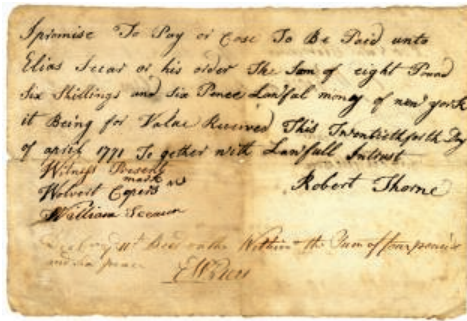 I promise To Pay or Cose To Be Paid unto
Elias Secar or his order The Sum of eight Pound
Six Shillings and Six Pence Lawful money of new york
it Being for Value Received This Twentieth forth Day
of april 1771 To gether with Lawfull Intrust
Witness Present
mark
Wolvert
William
Robert Thorne
Within the Sum of four pounds
and six pence